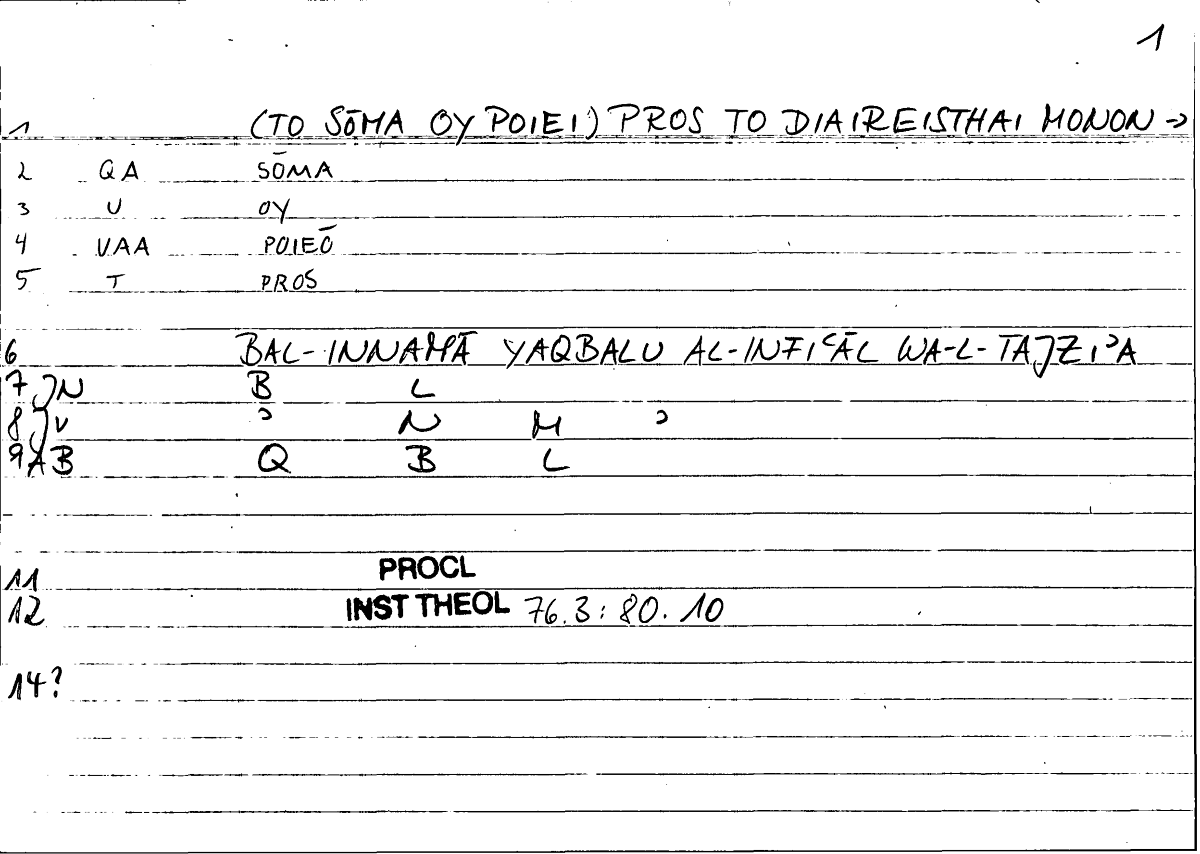 1
1 (TO SŌMA OY POIEI) PROS TO DIAIREISTHAI MONON →
2 QA SŌMA
3 U OY
4 VAA POIEŌ
5 T PROS
6 BAL-INNAMĀ YAQBALU AL-INFIʿĀL WA-L-TAJZIʾA
7 JN B L
8 JV ʾ N M ʾ
9 AB Q B L
11 PROCL
12 INST THEOL 76.3: 80.10
14?